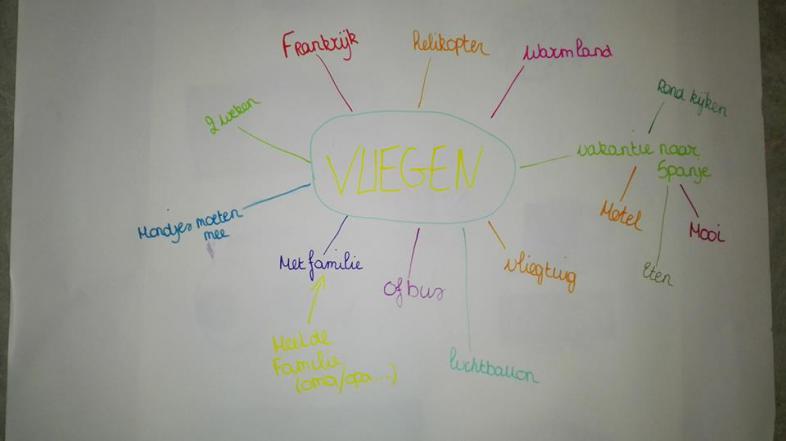 Frankrijk
helikopter
warm land
Rond kijken
2 weken
VLIEGEN
vakantie naar
Spanje
Hotel
Mooi
Eten
Hondjes moeten
mee
Met familie
of bus
vliegtuig
luchtballon
Familie
(oma/opa...)